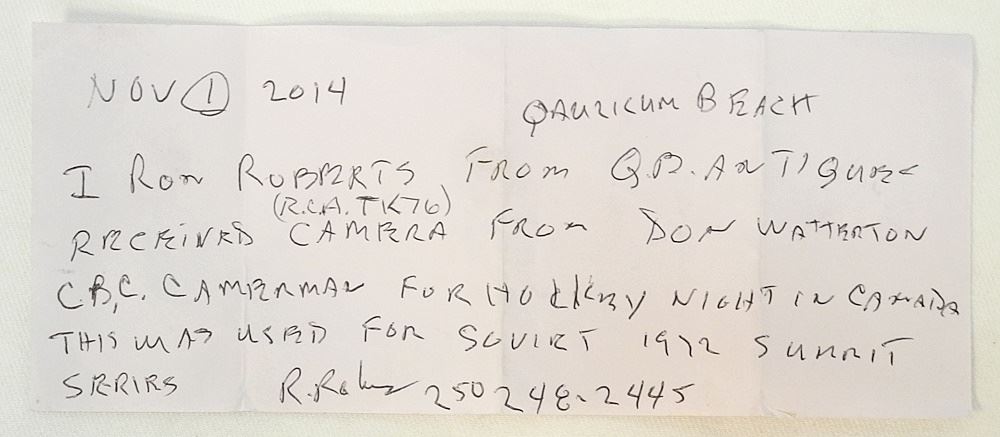 NOV 1 2014
QAULICUM BEACH
I RON ROBERTS FROM Q.B. ANTIQUES
(R.C.A. TK76)
RECEIVED CAMERA FROM DON WATTERTON
C.B.C. CAMERMAN FOR HOCKEY NIGHT IN CANADA
THIS WAS USED FOR SOVIET 1972 SUMMIT
SERIES R. Roberts 250 248-2445